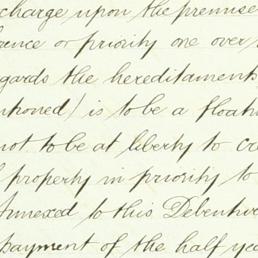 charge upon the premise
rence or priority one over
egards the hereditaments
ntioned) is to be a floati
not to be at liberty to cr
property in priority to
Annexed to this Debentur
payment of the half ye